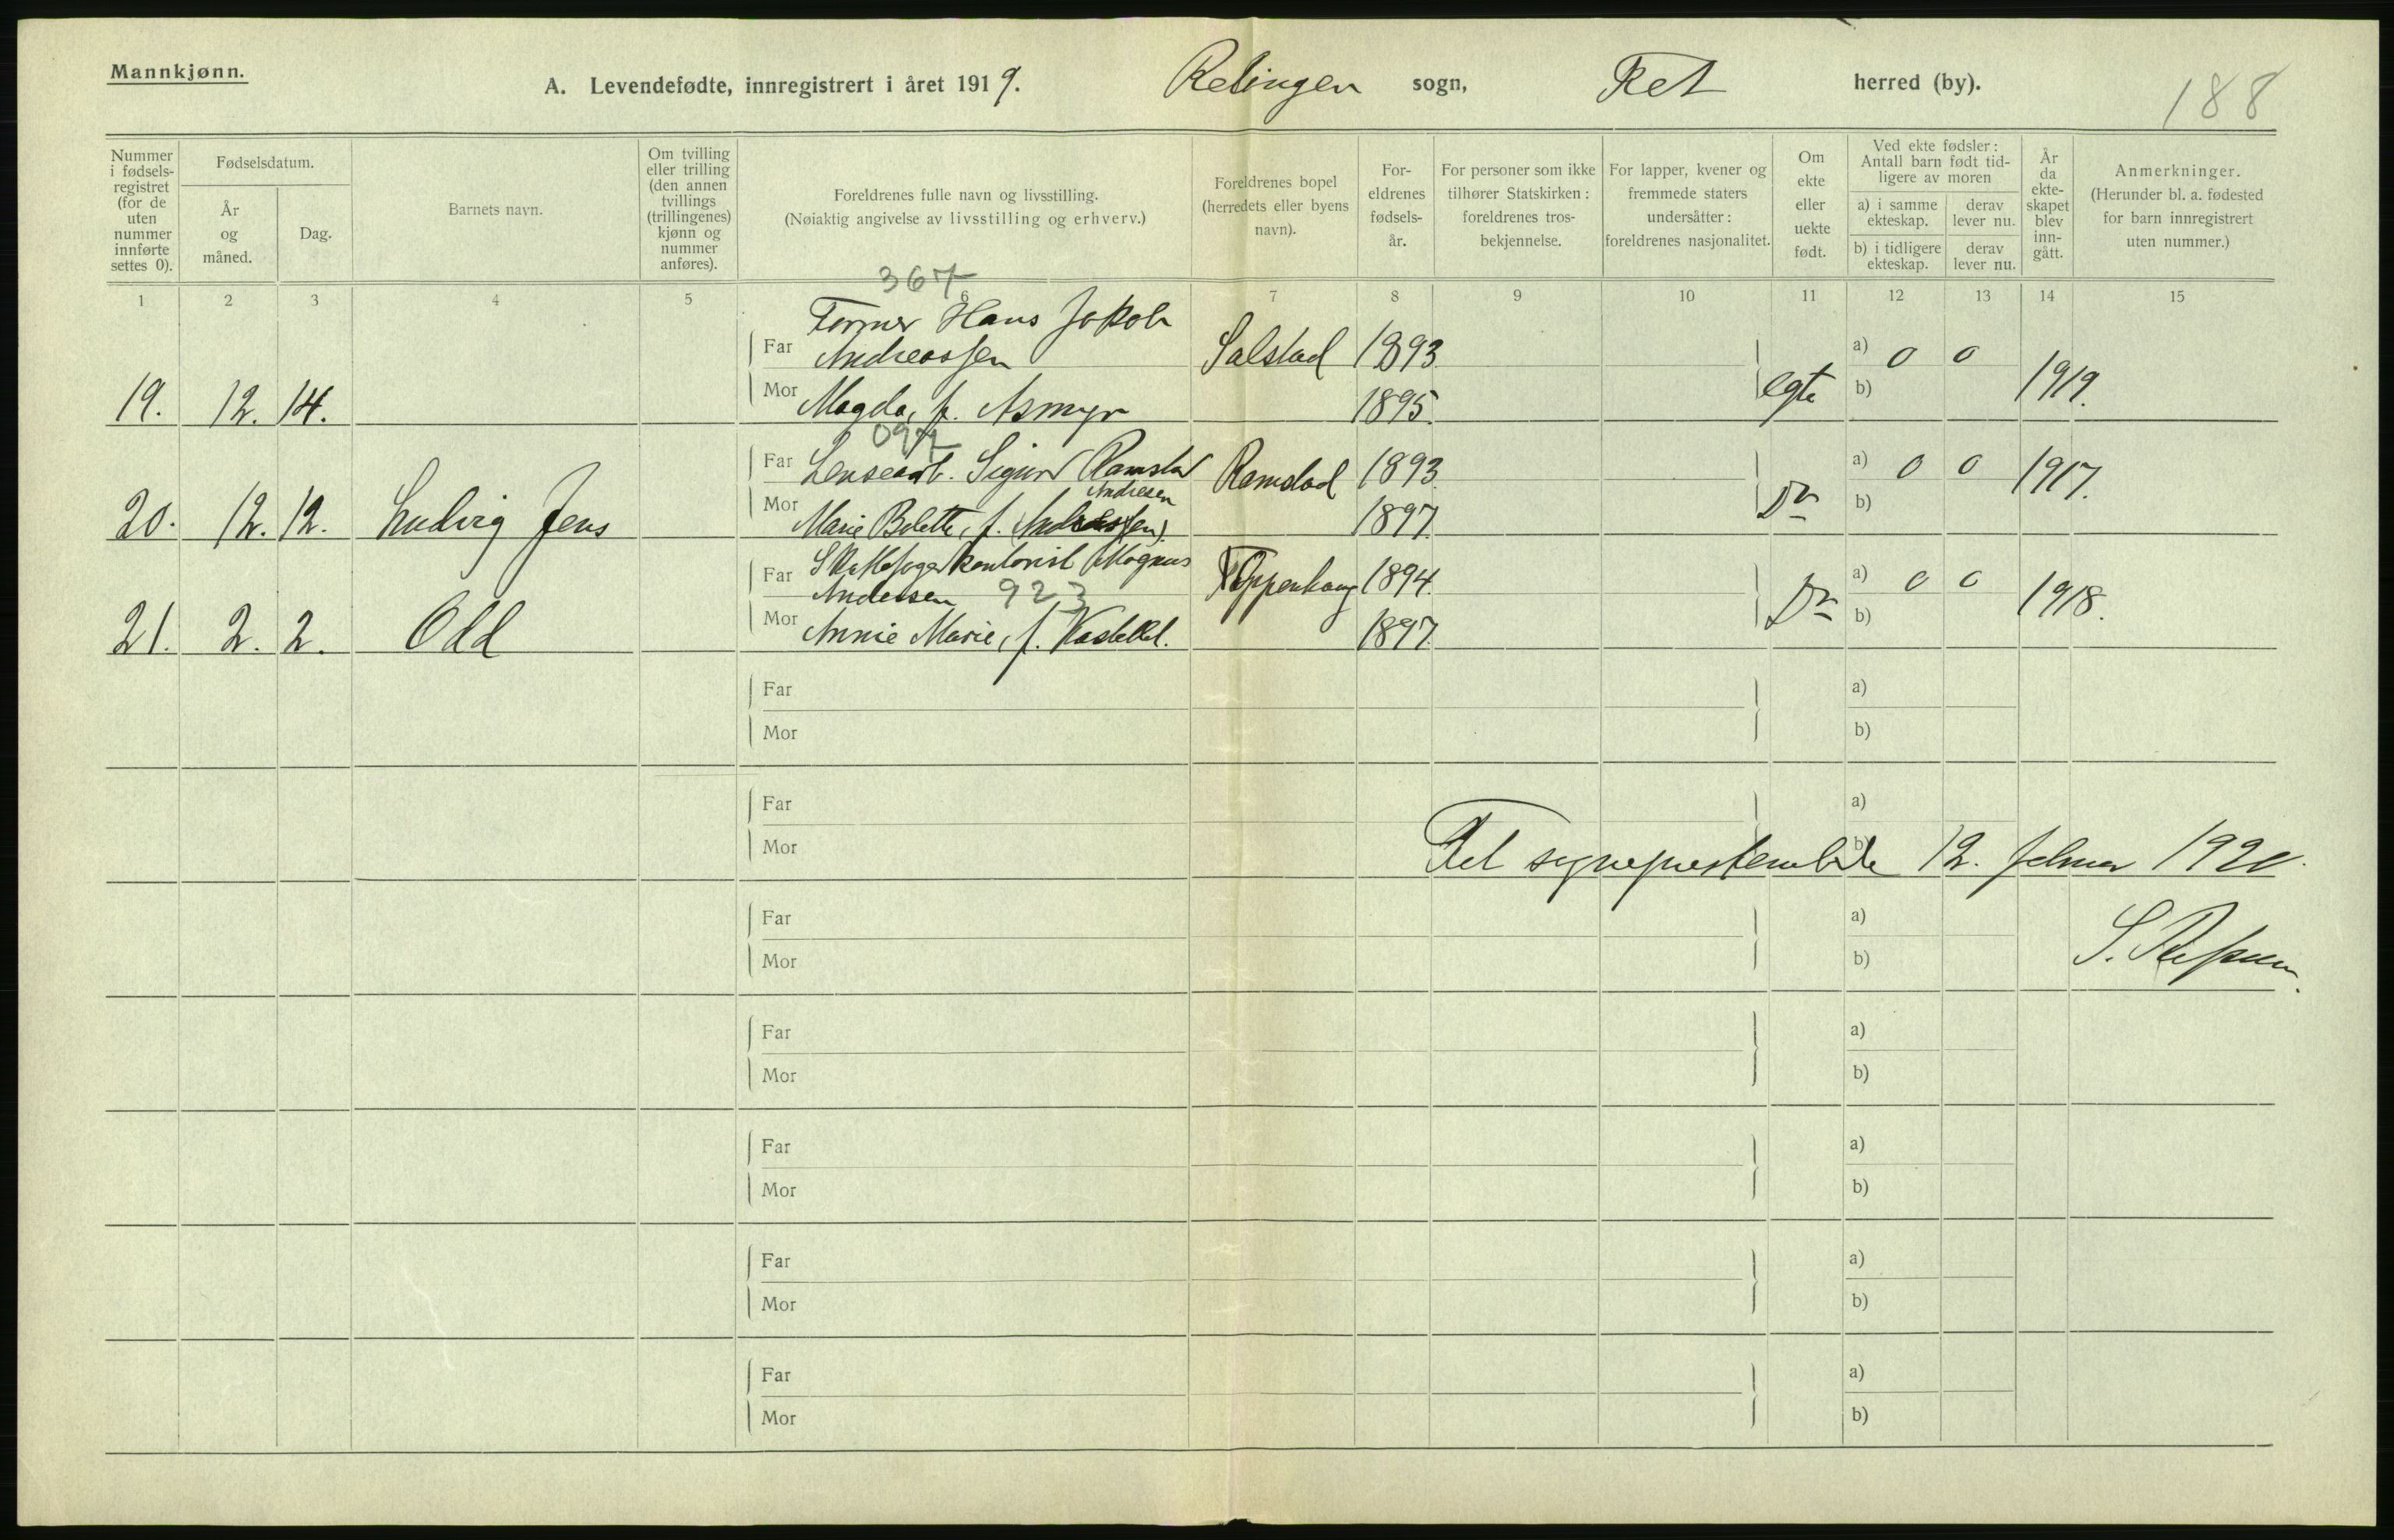 Mannkjønn.
A. Levendefødte, innregistrert i året 1919. Relingen sogn, Fet herred (by).
188
Nummer i fødselsregistret (for de uten nummer innførte settes 0).
Fødselsdatum.
År og måned.
Dag.
Barnets navn.
Om tvilling eller trilling (den annen tvillings (trillingenes) kjønn og nummer anføres).
Foreldrenes fulle navn og livsstilling.
(Nøiaktig angivelse av livsstilling og erhverv.)
Foreldrenes bopel (herredets eller byens navn).
Foreldrenes fødselsår.
For personer som ikke tilhører Statskirken: foreldrenes trosbekjennelse.
For lapper, kvener og fremmede staters undersåtter: foreldrenes nasjonalitet.
Om ekte eller uekte født.
Ved ekte fødsler: Antall barn født tidligere av moren
a) i samme ekteskap.
derav lever nu.
b) i tidligere ekteskap.
derav lever nu.
År da ekteskapet blev inngått.
Anmerkninger.
(Herunder bl. a. fødested for barn innregistrert uten nummer.)
1 2 3 4 5 6 7 8 9 10 11 12 13 14 15
367
Former Hans Jakob
Far Andreassen Salstad 1893 a) 0 0
19. 12. 14. Mor Magda, f. Asmyr 1895. egte b) 1919.
097
Far Lensearb. Sigurd Ramstad Ramstad 1893 a) 0 0 1917.
Andresen
20. 12. 12. Ludvig Jens Mor Marie Bolette, f. (Andreassen). 1897. Do b)
Far Skattefogedkontorist Magnus Toppenhaug 1894. a) 0 0
Andersen 923
21. 2. 2. Odd Mor Annie Marie, f. Kastellet. 1897. Do b) 1918.
Far a)
Mor b)
Far a)
Mor b)
Fet sogneprestembede 12. februar 1920.
Far a)
S.
Mor b)
Far a)
Mor b)
Far a)
Mor b)
Far a)
Mor b)
Far a)
Mor b)